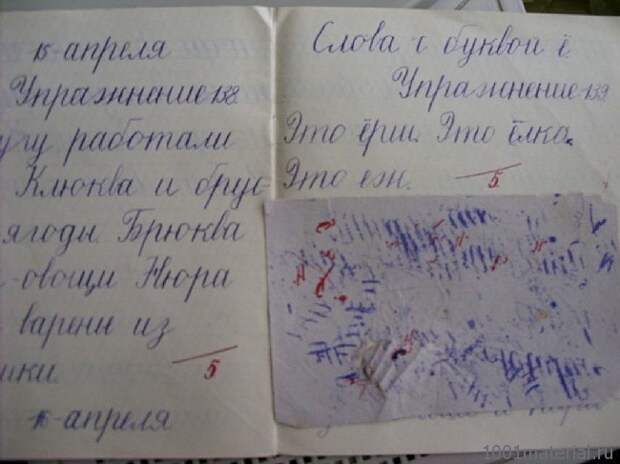 15-апреля
Упражнение 138.
угу работали
Клюква и брус-
ягоды. Брюква
- овощи. Нюра
варень из
ики.
5
15-апреля
Слова с буквой ё.
Упражнение-139
Это ёрш. Это ёлка.
Это еж.
5
1001material.ru